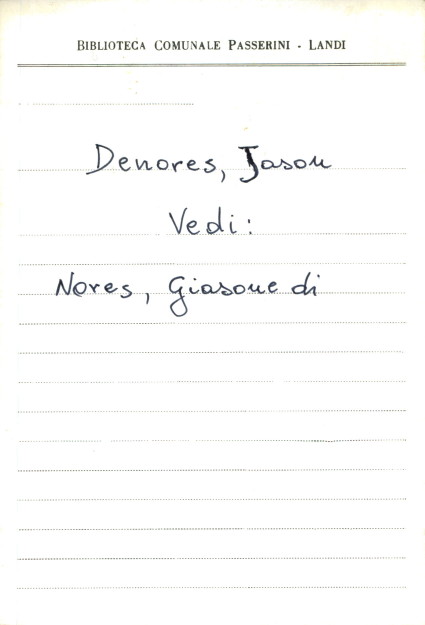 BIBLIOTECA COMUNALE PASSERINI - LANDI
Denores, Jason
Vedi:
Nores, Giasone di